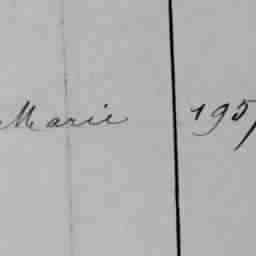 Marie 195